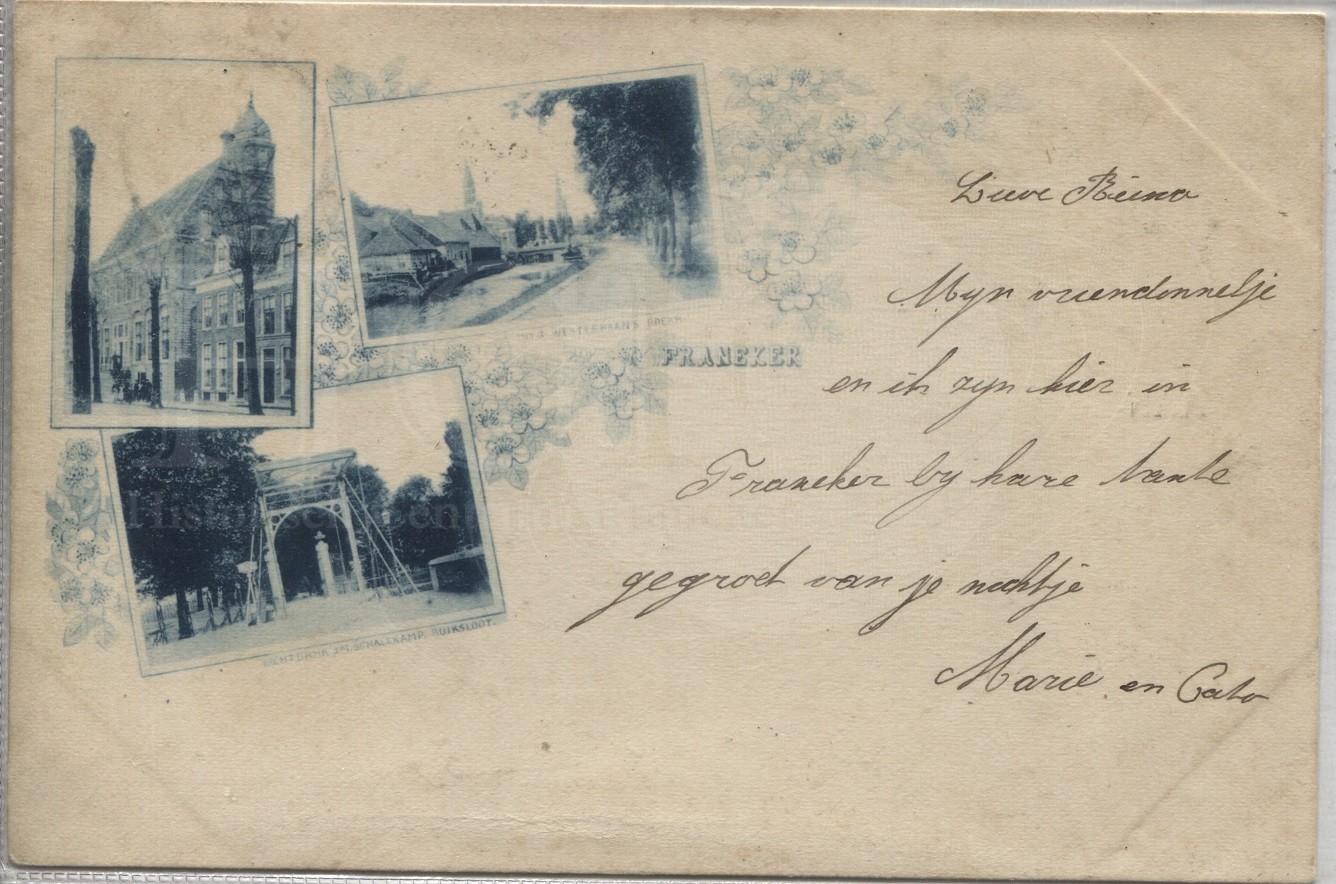 FRANEKER
LICHTDRUK J.M. SCHALEKAMP. BUIKSLOOT.
Lieve
Myn vriendinnetje
en ik zyn hier in
Franeker by hare tante
gegroet van je nichtje
Marie en Cato